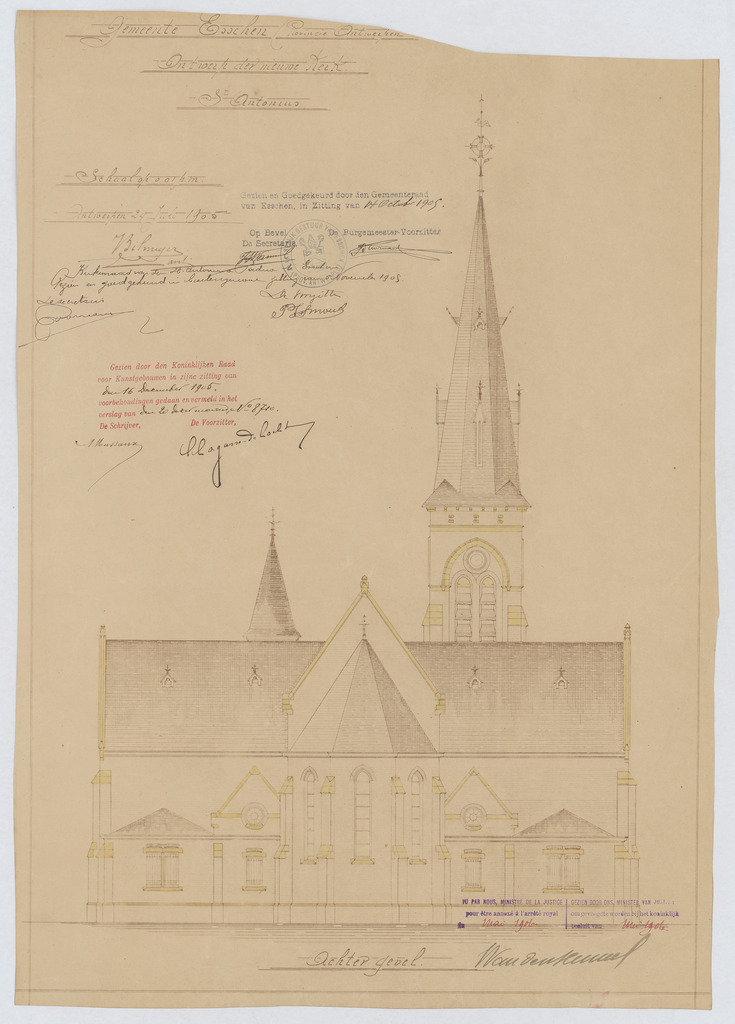 Gemeente Esschen Provincie Antwerpen
Ontwerp der nieuwe Kerk
St Antonius
Schaal op 0.01 p.m.
Antwerpen 25 Juli 1905
Gezien en Goedgekeurd door den Gemeenteraad
van Esschen, in Zitting van 14 October 1905.
Op Bevel De Burgemeester-Voorzitter
De Secretaris
Kerkeraad van St. Antonius
Gezien en goedgekeurd in zitting van 5 November 1905.
De secretaris
De Voorzitter
Gezien door den Koninklijken Raad
voor Kunstgebouwen in zijne zitting van
den 16 December 1905.
voorbehoudingen gedaan en vermeld in het
verslag van den No 8710.
De Schrijver, De Voorzitter,
VU PAR NOUS, MINISTRE DE LA JUSTICE
pour être annexé à l'arrêté royal
du Mai 1906
GEZIEN DOOR ONS, MINISTER VAN
om gevoegd te worden bij het koninklijk
besluit van Mei 1906
Achter gevel.